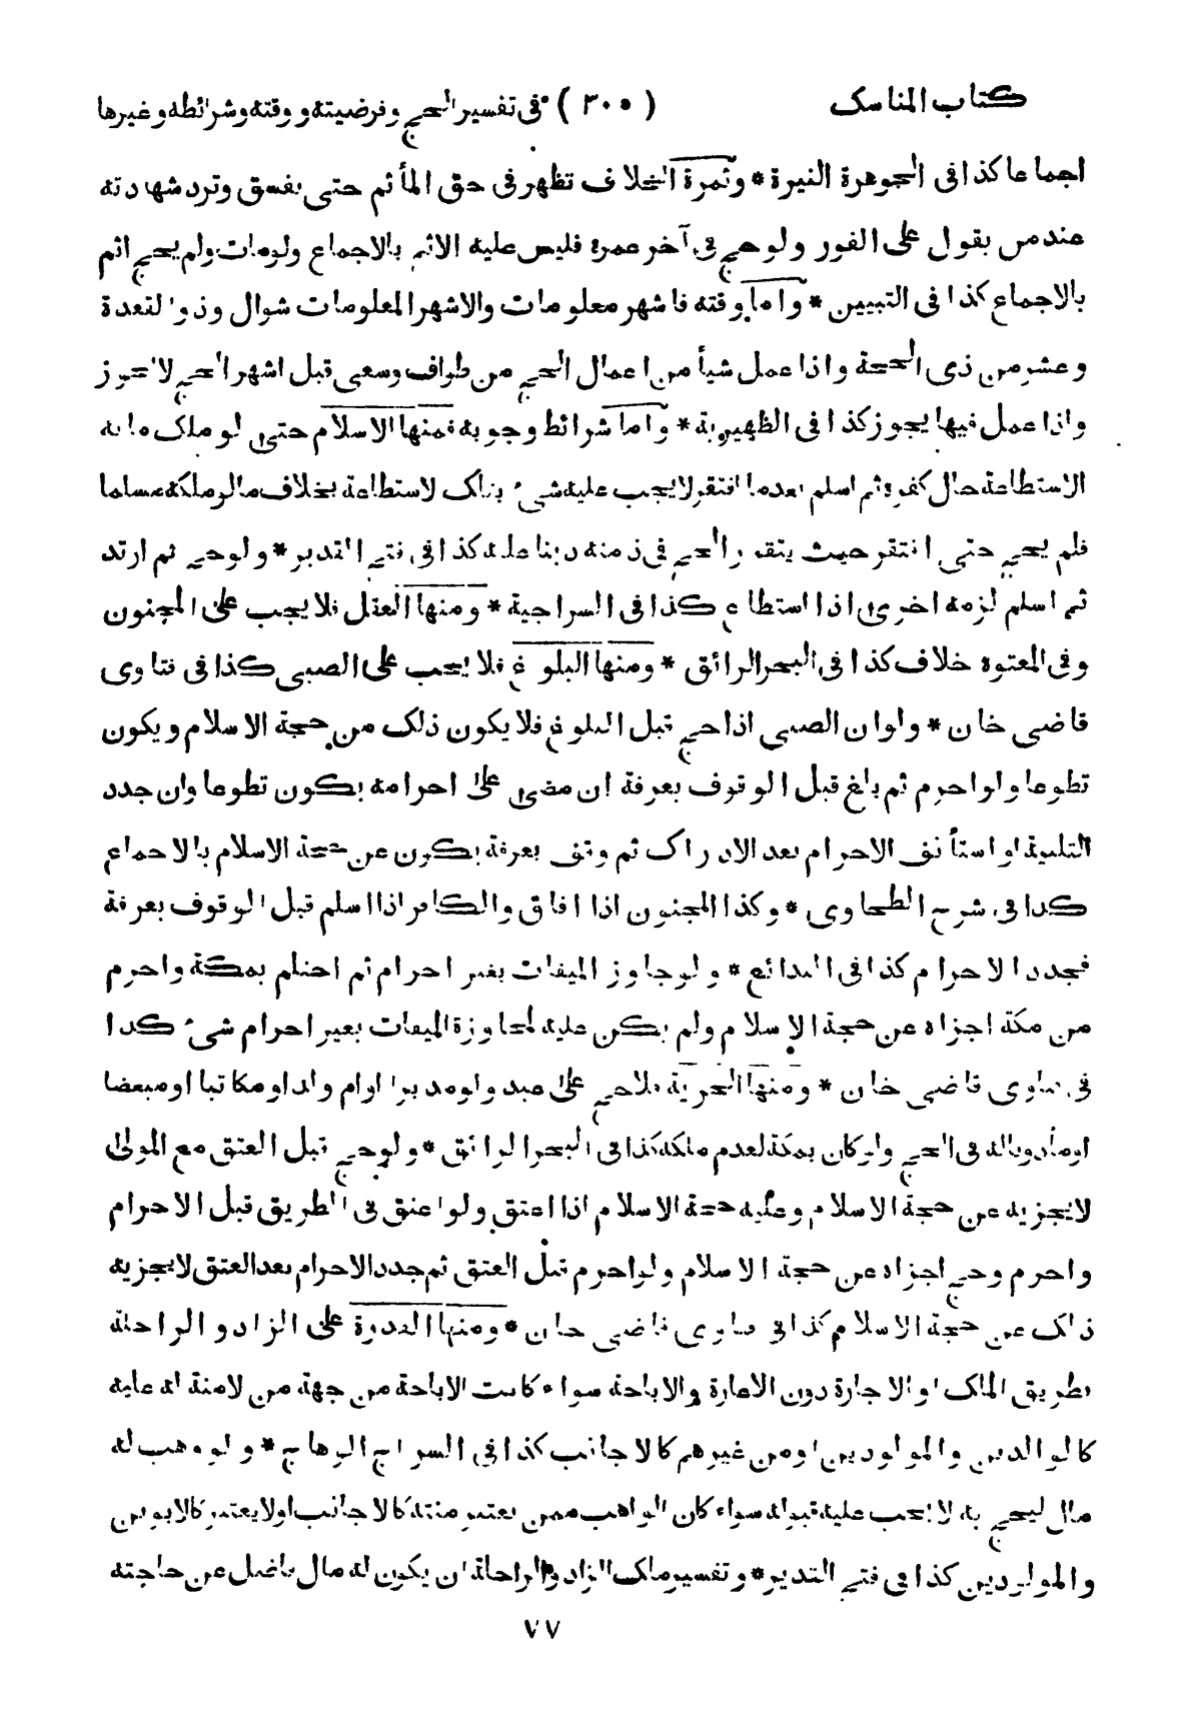 كتاب المناسك ( ٣٠٥ ) في تفسير الحج وفرضيته ووقته وشرائطه وغيرها
اجماعا كذا في الجوهرة النيرة * وثمرة الخلاف تظهر في حق المأثم حتى يفسق وترد شهادته
عند من يقول على الفور ولو حج في آخر عمره فليس عليه الاثم بالاجماع ولو مات ولم يحج اثم
بالاجماع كذا في التبيين * واما وقته فاشهر معلومات والاشهر المعلومات شوال وذو القعدة
وعشر من ذي الحجة واذا عمل شيأ من اعمال الحج من طواف وسعى قبل اشهر الحج لا يجوز
واذا عمل فيها يجوز كذا في الظهيرية * واما شرائط وجوبه فمنها الاسلام حتى لو ملك ما به
الاستطاعة حال كفره ثم اسلم بعد ما افتقر لا يجب عليه شئ بتلك الاستطاعة بخلاف ما لو ملكه مسلما
فلم يحج حتى افتقر حيث يتقرر الحج في ذمته دينا عليه كذا في فتح القدير * ولو حج ثم ارتد
ثم اسلم لزمه اخرى اذا استطاع كذا في السراجية * ومنها العقل فلا يجب على المجنون
وفي المعتوه خلاف كذا في البحر الرائق * ومنها البلوغ فلا يجب على الصبي كذا في فتاوى
قاضي خان * ولو ان الصبي اذا حج قبل البلوغ فلا يكون ذلك من حجة الاسلام ويكون
تطوعا ولو احرم ثم بلغ قبل الوقوف بعرفة ان مضى على احرامه يكون تطوعا وان جدد
التلبية او استأنف الاحرام بعد الادراك ثم وقف بعرفة يكون عن حجة الاسلام بالاجماع
كذا في شرح الطحاوي * وكذا المجنون اذا افاق والكافر اذا اسلم قبل الوقوف بعرفة
فجدد الاحرام كذا في البدائع * ولو جاوز الميقات بغير احرام ثم احتلم بمكة واحرم
من مكة اجزاه عن حجة الاسلام ولم يكن عليه لمجاوزة الميقات بغير احرام شئ كذا
في فتاوى قاضي خان * ومنها الحرية فلا حج على عبد ولو مدبرا او ام ولد او مكاتبا او مبعضا
او مأذونا له في الحج ولو كان بمكة لعدم ملكه كذا في البحر الرائق * ولو حج قبل العتق مع المولى
لا يجزيه عن حجة الاسلام وعليه حجة الاسلام اذا اعتق ولو اعتق في الطريق قبل الاحرام
واحرم وحج اجزاه عن حجة الاسلام ولو احرم قبل العتق ثم جدد الاحرام بعد العتق لا يجزيه
ذلك عن حجة الاسلام كذا في فتاوى قاضي خان * ومنها القدرة على الزاد والراحلة
بطريق الملك او الاجارة دون الاعارة والاباحة سواء كانت الاباحة من جهة من لا منة له عليه
كالوالدين والمولودين او من غيرهم كالاجانب كذا في السراج الوهاج * ولو وهب له
مال ليحج به لا يجب عليه قبوله سواء كان الواهب ممن يعتبر منته كالاجانب او لا يعتبر كالابوين
والمولودين كذا في فتح القدير * وتفسير ملك الزاد والراحلة ان يكون له مال فاضل عن حاجته
٧٧